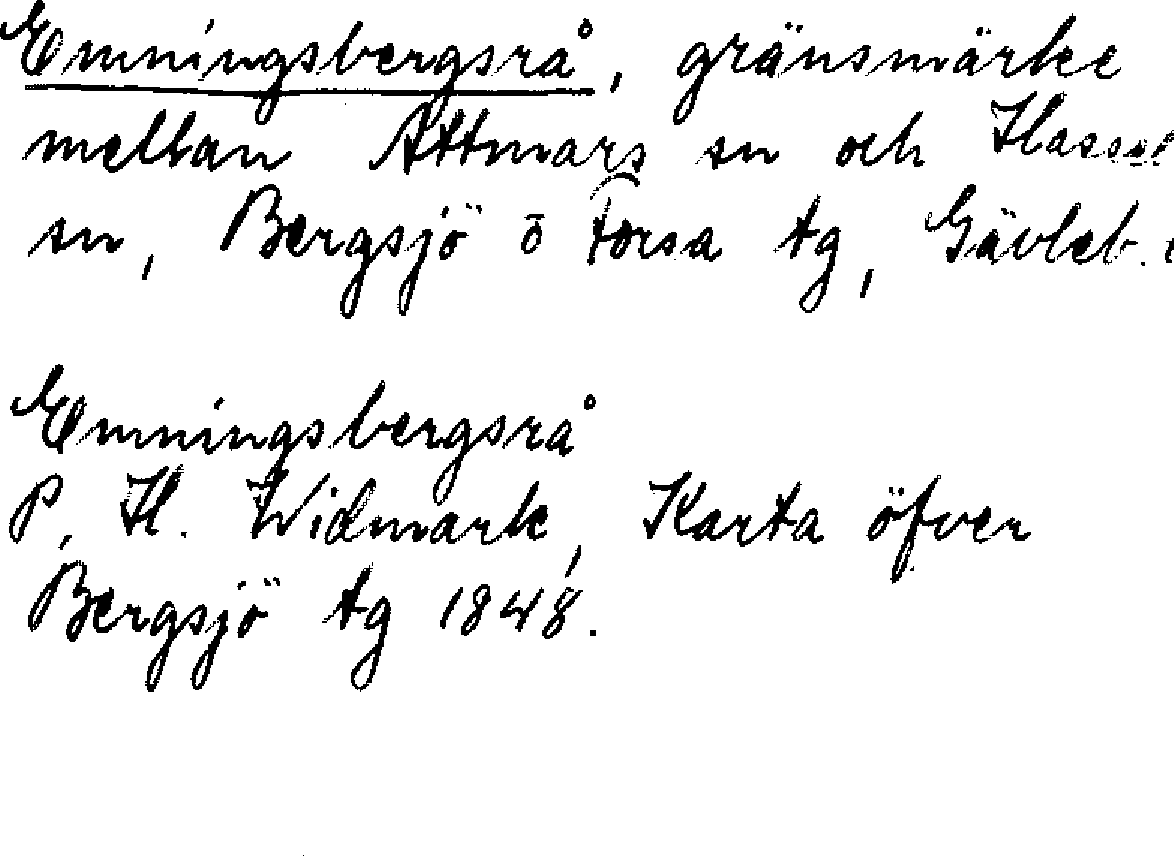 Emningsbergsrå, gränsmärke
mellan Attmars sn och Hassel
sn, Bergsjö o Forsa tg, Gävleb.
Emningsbergsrå
P. H. Widmark, Karta öfver
Bergsjö tg 1848.